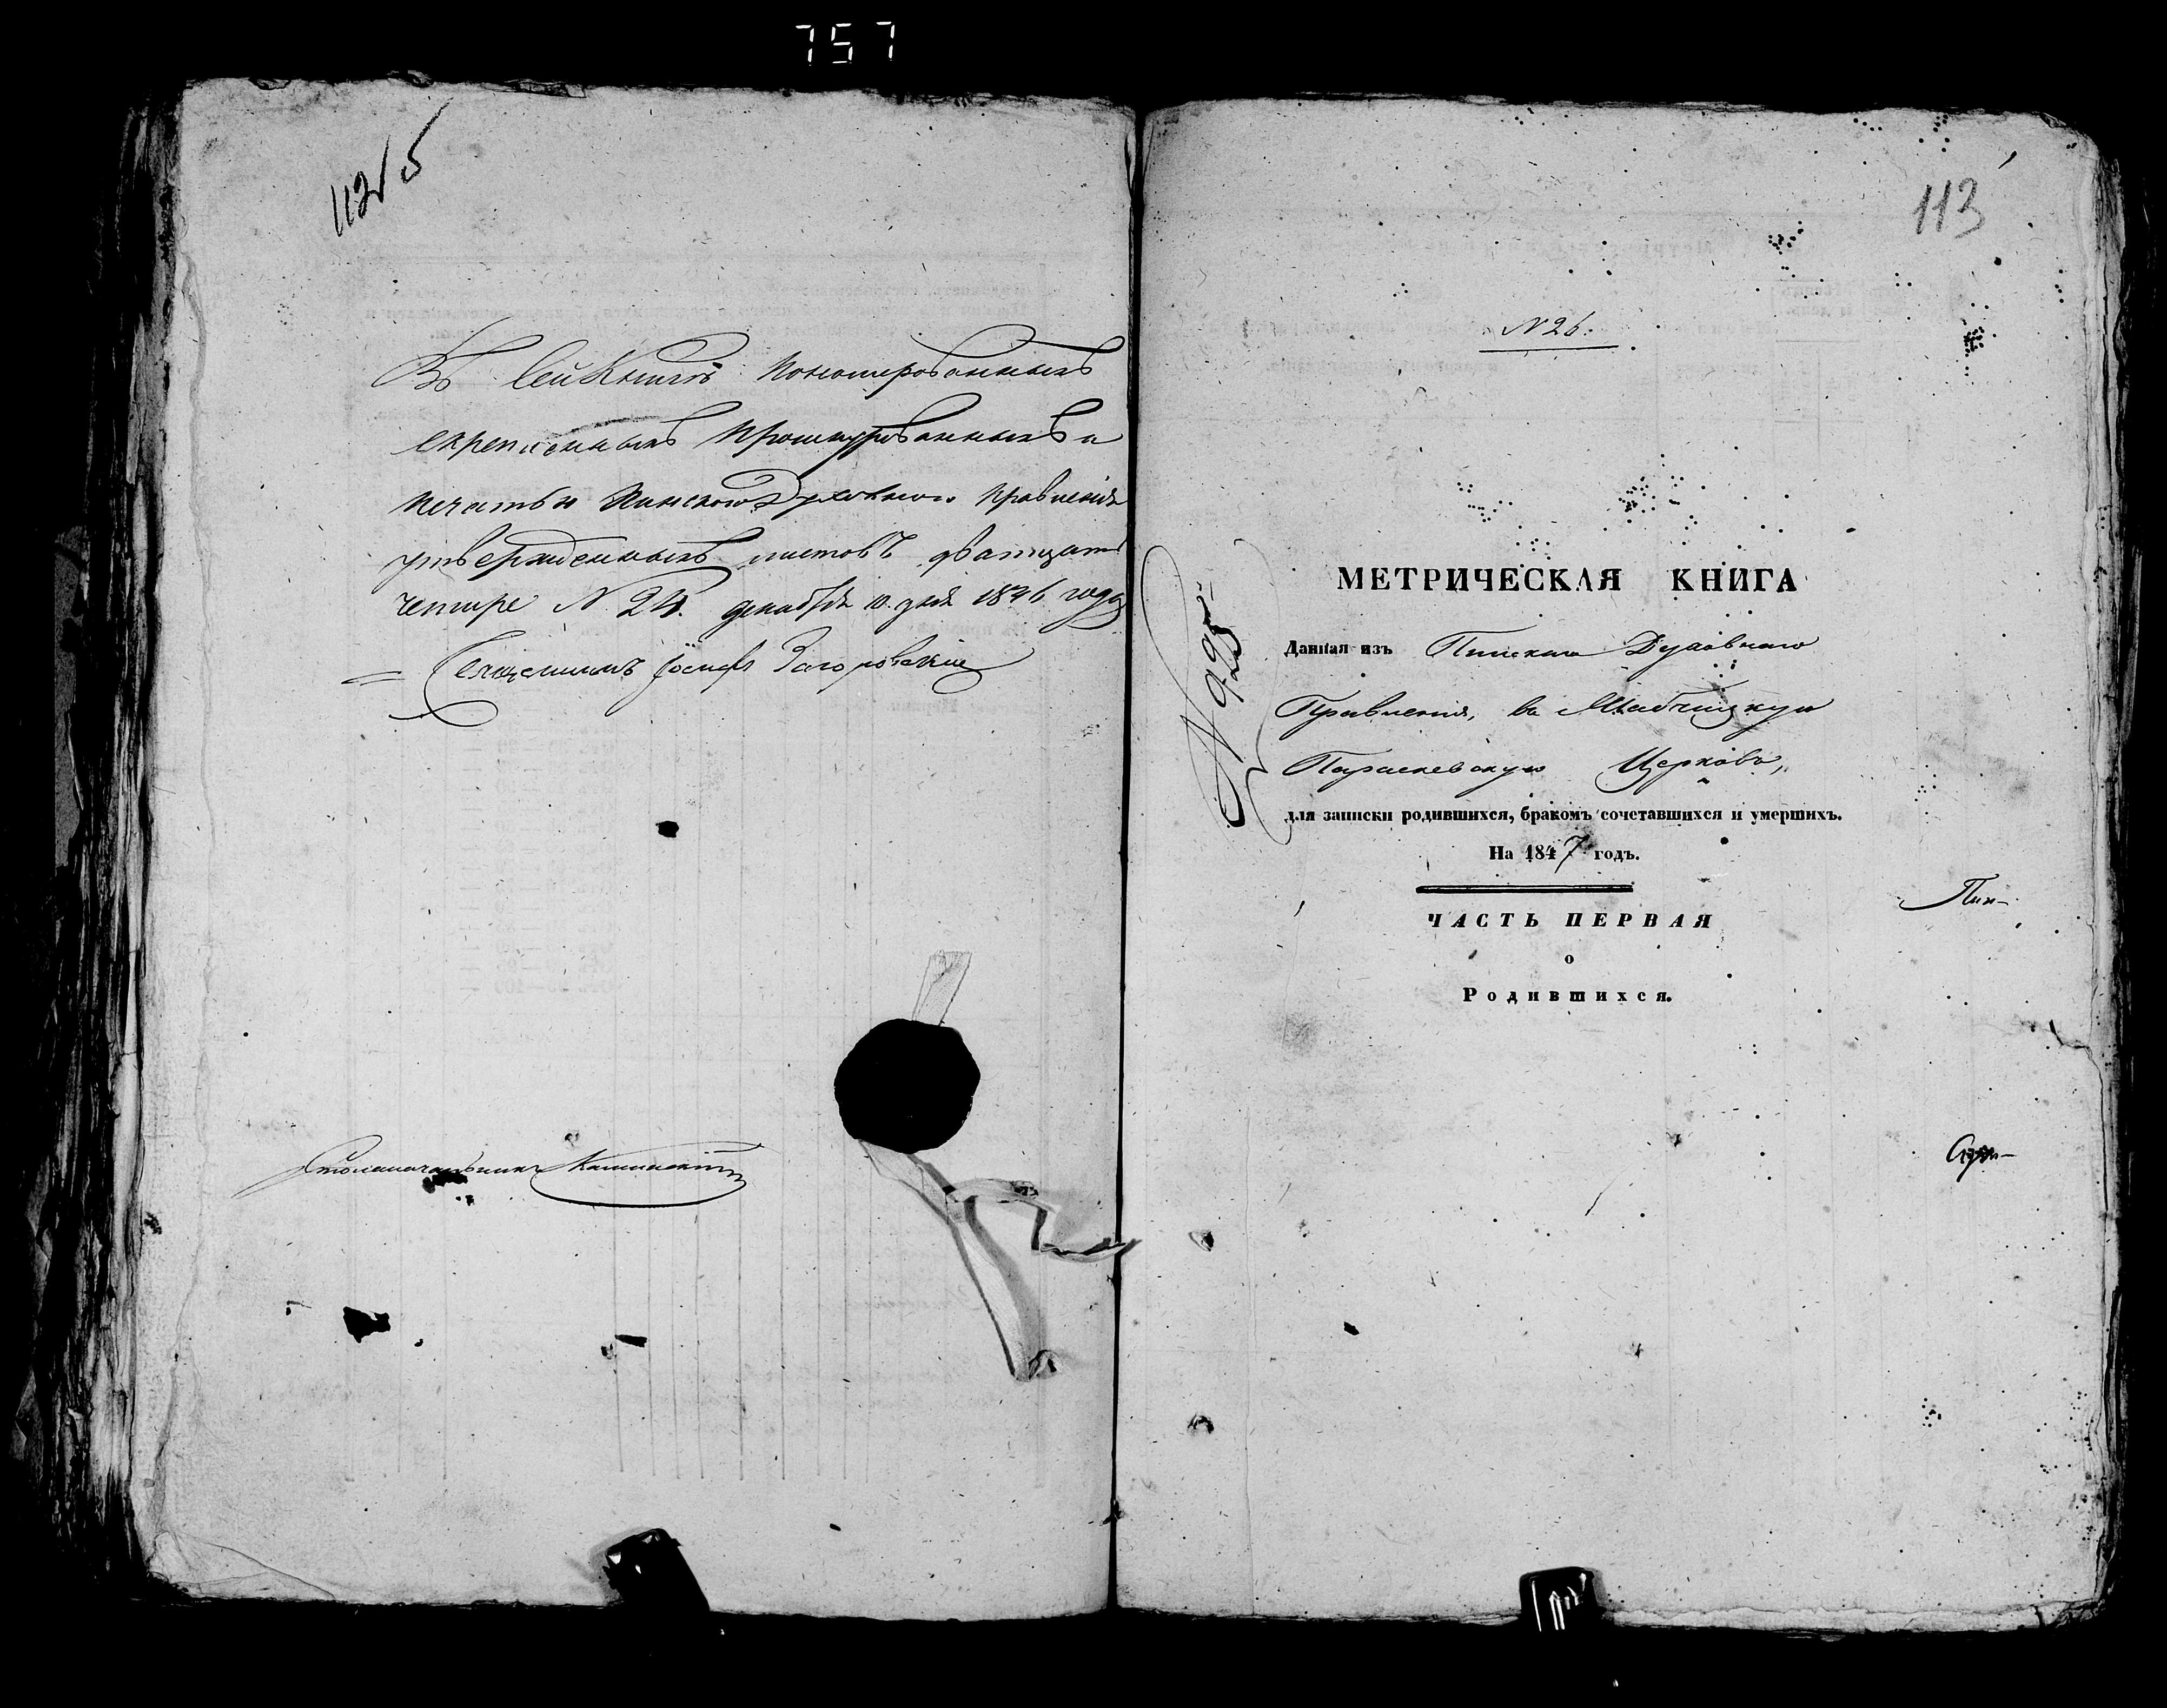 757
В сей Книге пономерованныхъ
скрепленныхъ прошнурованныхъ и
печатью Пинского Духовного правления
утвержденныхъ листовъ дватцать
четыре N 24. декабря 10. дня 1846 года
Священникъ Іосифъ Загоровскій
Столоначальникъ
113
N 26.
МЕТРИЧЕСКАЯ КНИГА
Данная изъ Пинскаго Духовнаго
Правления, въ
Параскевскую Церковь,
для записки родившихся, бракомъ сочетавшихся и умершихъ.
На 1847 годъ.
Пин-
ЧАСТЬ ПЕРВАЯ
о
Родившихся.